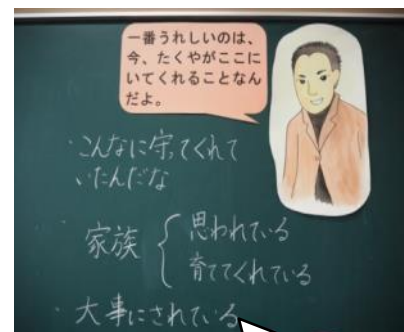 一番うれしいのは、
今、たくやがここに
いてくれることなん
だよ。
・こんなに守ってくれて
いたんだな
・家族 { 思われている
育ててくれている
・大事にされている